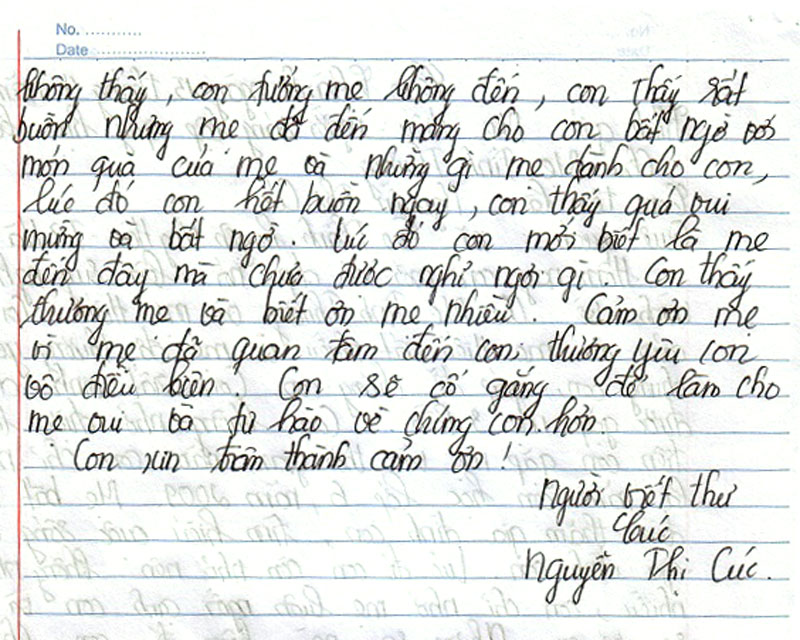 No. ...........
Date ........................
không thấy, con tưởng mẹ không đến, con thấy rất
buồn nhưng mẹ đã đến mang cho con bất ngờ với
món quà của mẹ và những gì mẹ dành cho con,
lúc đó con hết buồn ngay, con thấy quá vui
mừng và bất ngờ. lúc đó con mới biết là mẹ
đến đây mà chưa được nghỉ ngơi gì. Con thấy
thương mẹ và biết ơn mẹ nhiều. Cảm ơn mẹ
vì mẹ đã quan tâm đến con, thương yêu con
vô điều kiện. Con sẽ cố gắng để làm cho
mẹ vui và tự hào về chúng con hơn.
Con xin trân thành cảm ơn!
Người viết thư
Cúc
Nguyễn Thị Cúc.